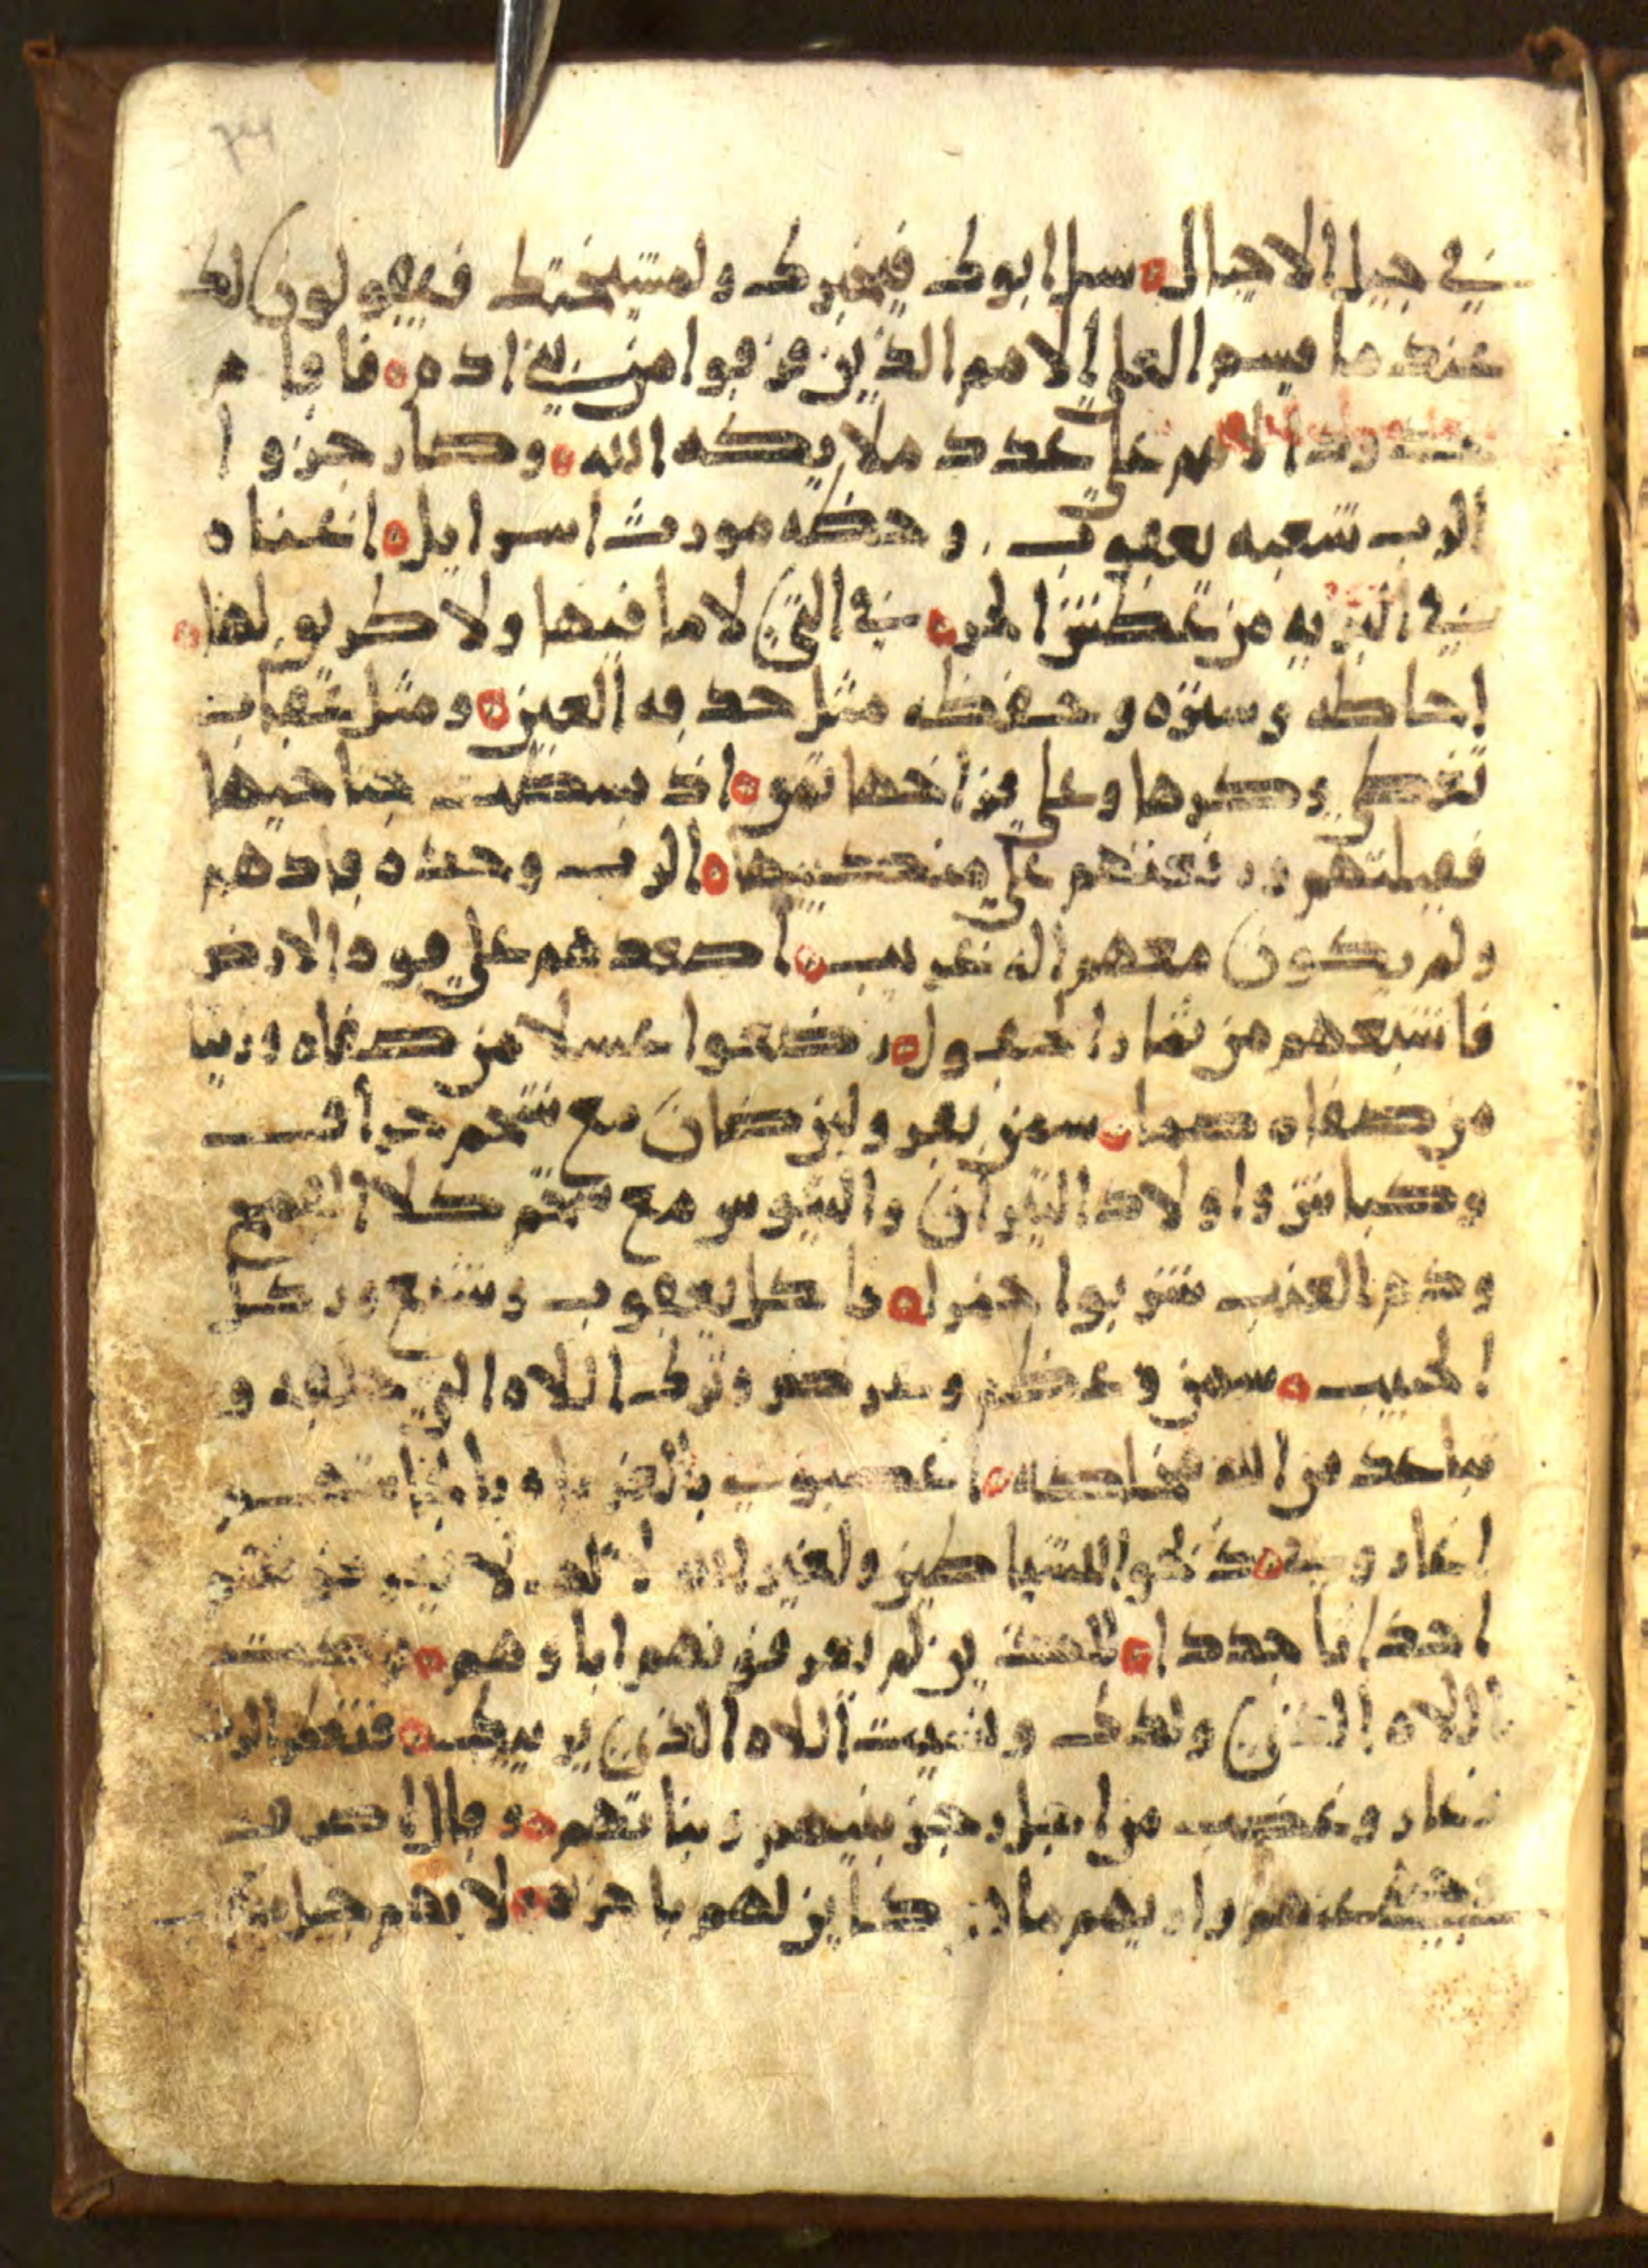 في جيل الاجيال سل ابوك فيخبرك ولمشيختك فيقولون لك
عندما قسم العلي الامم الذين فرقوا من بني ادم فاقام
حدود الامم على عدد ملايكه الله وصار جزوا
الرب شعبه يعقوب وحظه مورث اسرايل اغناه
في البريه من عطش الحر في التي لاما فيها ولا طريق لها
احاطه وستره وحفظه مثل حدقه العين ومثل عقاب
تغطي وكرها وعلى فراخها تقو اذ بسطت جناحيها
فقبلتهم ورفعتهم على منكبيها الرب وحده قادهم
ولم يكون معهم اله غريب اصعدهم على قوه الارض
فاشبعهم من ثمار الحقول رضعوا عسلا من صفاه وزيتا
من صفاه صما سمن بقر ولبن ضان مع شحم خراف
وكباش واولاد الثيران والتيوس مع شحم كلا القمح
ودم العنب شربوا خمرا فاكل يعقوب وشبع وركل
الحبيب سمن وعظم وعرض وترك اللاه الذي خلقه و
تباعد من الله مخلصه اغضبوني بالغربا
ذبحوا للشياطين ولغير الله لالهه لا يعرفونهم
احداثا جددا للذين لم يعرفونهم اباوهم تركت
اللاه الذي ولدك ونسيت اللاه الذي يربيك فنظر الرب
فغار وغضب من اجل رجز بنيهم وبناتهم وقال اصرف
وجهي عنهم واريهم ماذا كاين لهم باخره لانهم جيل